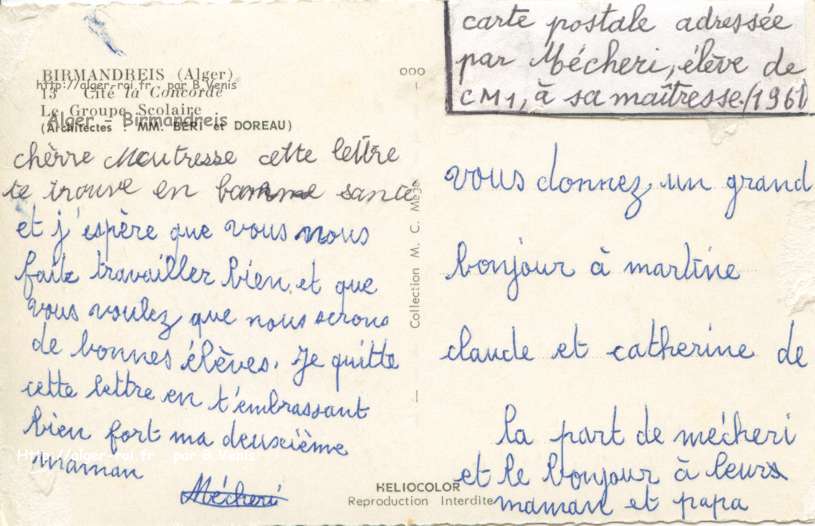 carte postale adressée
par Mécheri, élève de
CM1, à sa maîtresse./1961
BIRMANDREIS (Alger)
http://alger-roi.fr par B.Venis
13 Cité la Concorde
Le Groupe Scolaire
Alger - Birmandreis
(Architectes : MM. BERI et DOREAU)
chèrre Maîtresse cette lettre
te trouve en bonne santé
et j'espère que vous nous
faite travailler bien. et que
vous voulez que nous serons
de bonnes élèves. Je quitte
cette lettre en t'embrassant
bien fort ma deuxième
maman
http://alger-roi.fr par B.Venis
Mécheri
Collection M. C. Méjé
HELIOCOLOR
Reproduction Interdite
vous donnez un grand
bonjour à martine
claude et catherine de
la part de mécheri
et le bonjour à leurs
maman et papa